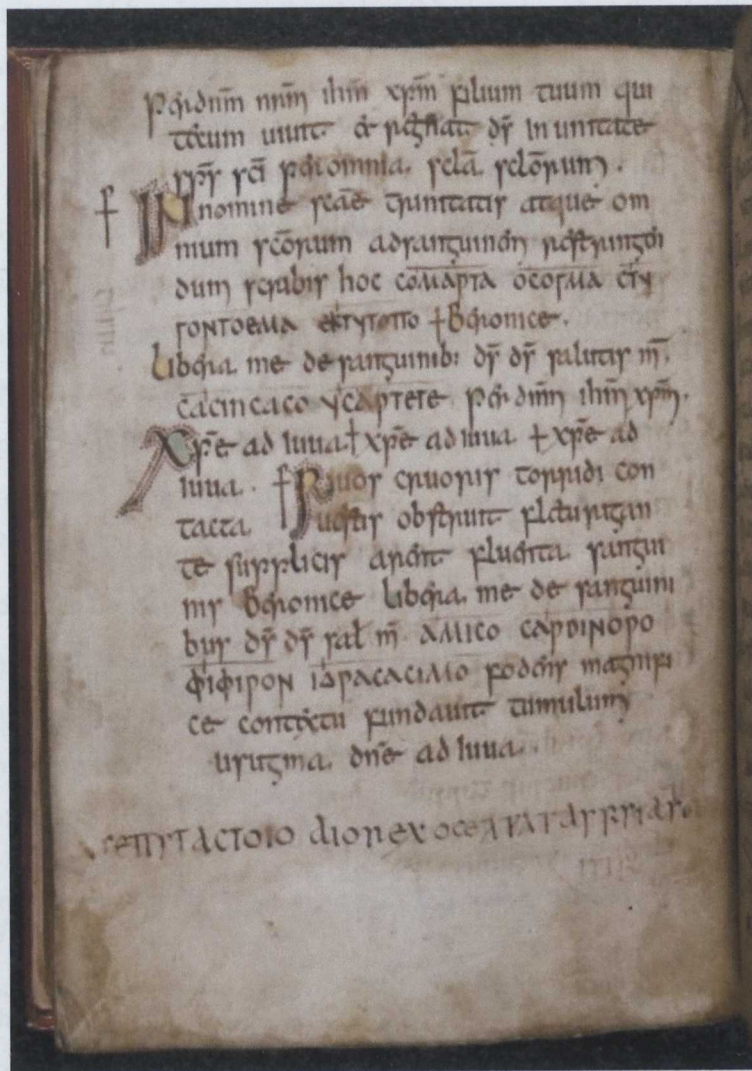 per dnm̄ nr̄m ihm̄ xpm̄ filium tuum qui
tecum uiuit et regnat ds̄ in unitate
sps̄ sc̄i per omnia scla sclorum .
† In nomine scāe trinitatis atque om
nium scōrum ad sanguinem restringen
dum scribis hoc COMAPTA OCOΓMA
ΓONTOEMA EKTYTOΠO † beronice .
Libera me de sanguinib: ds̄ ds̄ salutis m̄ .
CACINCACO YCAPTETE per dnm̄ ihm̄ xpm̄ .
Xpē ad iuua † xpē ad iuua † xpē ad
iuua . † Riuos cruoris torridi con
tacta uestis obstruit fletu rigan
te supplicis arent fluenta sangui
nis beronice libera me de sanguini
bus ds̄ ds̄ sal m̄ AMICO CAPDINOPO
ΦIΦIPON IΔPACACIMO fodens magnifi
ce contextu fundauit tumulum
usugma . dnē ad iuua .